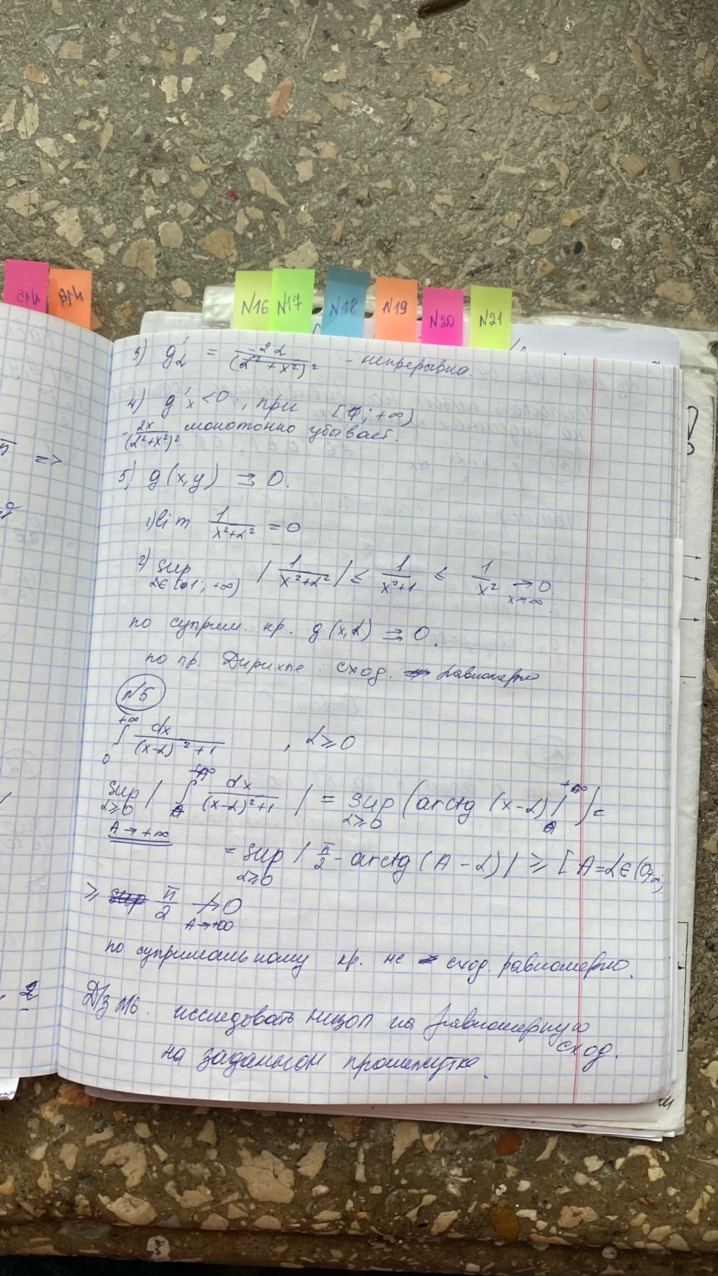 N16 N17 N18 N19 N20 N21
3) g'α = -2α/(α²+x²)² - непрерывна.
4) g'x < 0, при [1; +∞)
-2x/(α²+x²)² монотонно убывает.
5) g(x,y) ⇉ 0.
1) lim 1/(x²+α²) = 0
2) sup α∈[1; +∞) |1/(x²+α²)| ≤ 1/(x²+1) ≤ 1/x² → 0 x→∞
по суприм. кр. g(x,α) ⇉ 0.
по пр. Дирихле: сход. равномерно
N5
∫₀^{+∞} dx/((x-α)²+1) , α≥0
sup α≥0 |∫_A^{+∞} dx/((x-α)²+1)| = sup α≥0 (arctg (x-α)|_A^{+∞}) =
A→+∞
= sup α≥0 |π/2 - arctg(A-α)| ≥ [A=α∈(0;
≥ π/2 ↛ 0 A→+∞
по супримальному кр. не сход. равномерно.
Д/з N6. исследовать НИЗОП на равномерную
сход.
на заданном промежутке.
=>